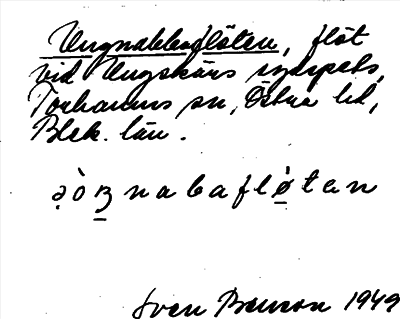 Ungnabbaflöten, flöt
vid Ungskärs sydspets,
Torhamns sn, Östra hd,
Blek. län.
nabafløtən
Sven Benson 1949